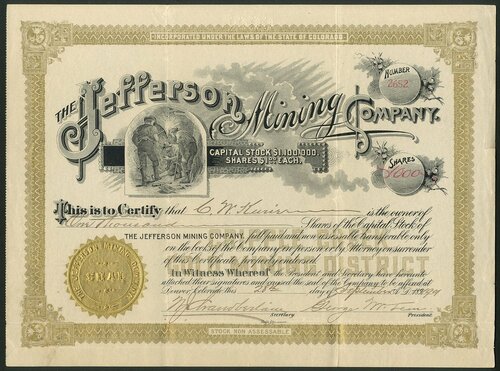 INCORPORATED UNDER THE LAWS OF THE STATE OF COLORADO.
THE Jefferson Mining COMPANY.
NUMBER
2652
CAPITAL STOCK $1,100,000.
SHARES $1.00 EACH.
SHARES
1000
This is to Certify that C. W. is the owner of
Thousand Shares of the Capital Stock of
THE JEFFERSON MINING COMPANY, full paid and non assessable transferable only
on the books of the Company in person or by Attorney on surrender
of this Certificate properly endorsed.
DISTRICT
In Witness Whereof the President and Secretary have hereunto
attached their signatures and caused the seal of the Company to be affixed at
Denver, Colorado this day of September A.D. 189
SEAL
W. Chamberlain
Secretary
George W.
President
STOCK NON ASSESSABLE